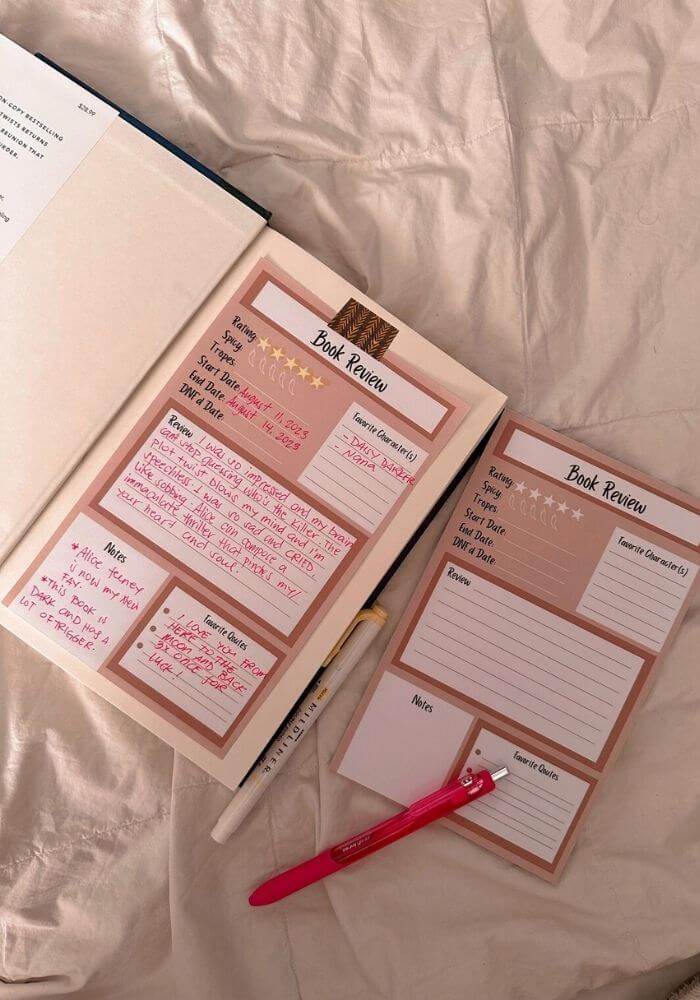 $28.99
ON-COPY BESTSELLING
TWISTS RETURNS
REUNION THAT
URDER.
Book Review
Rating:
Spicy:
Tropes:
Start Date: August 11, 2023
End Date: August 14, 2023
DNF'd Date:
Favorite Character(s)
- DAISY DARKER
- Nana
Review I was so impressed and my brain
cant stop guessing who's the killer. The
plot twist blows my mind and i'm
speechless. I was so sad and CRIED,
like sobbing. Alice can compose a
immaculate thriller that pinch's my/
your heart and soul.
Notes
* Alice Feeney
is now my new
FAV.
* THIS BOOK IS
DARK AND HAS A
LOT OF TRIGGER.
Favorite Quotes
I LOVE YOU FROM
HERE TO THE
MOON AND BACK
3X ONCE FOR
LUCK!
MILDLINER
Book Review
Rating:
Spicy:
Tropes:
Start Date:
End Date:
DNF'd Date:
Favorite Character(s)
Review
Notes
Favorite Quotes